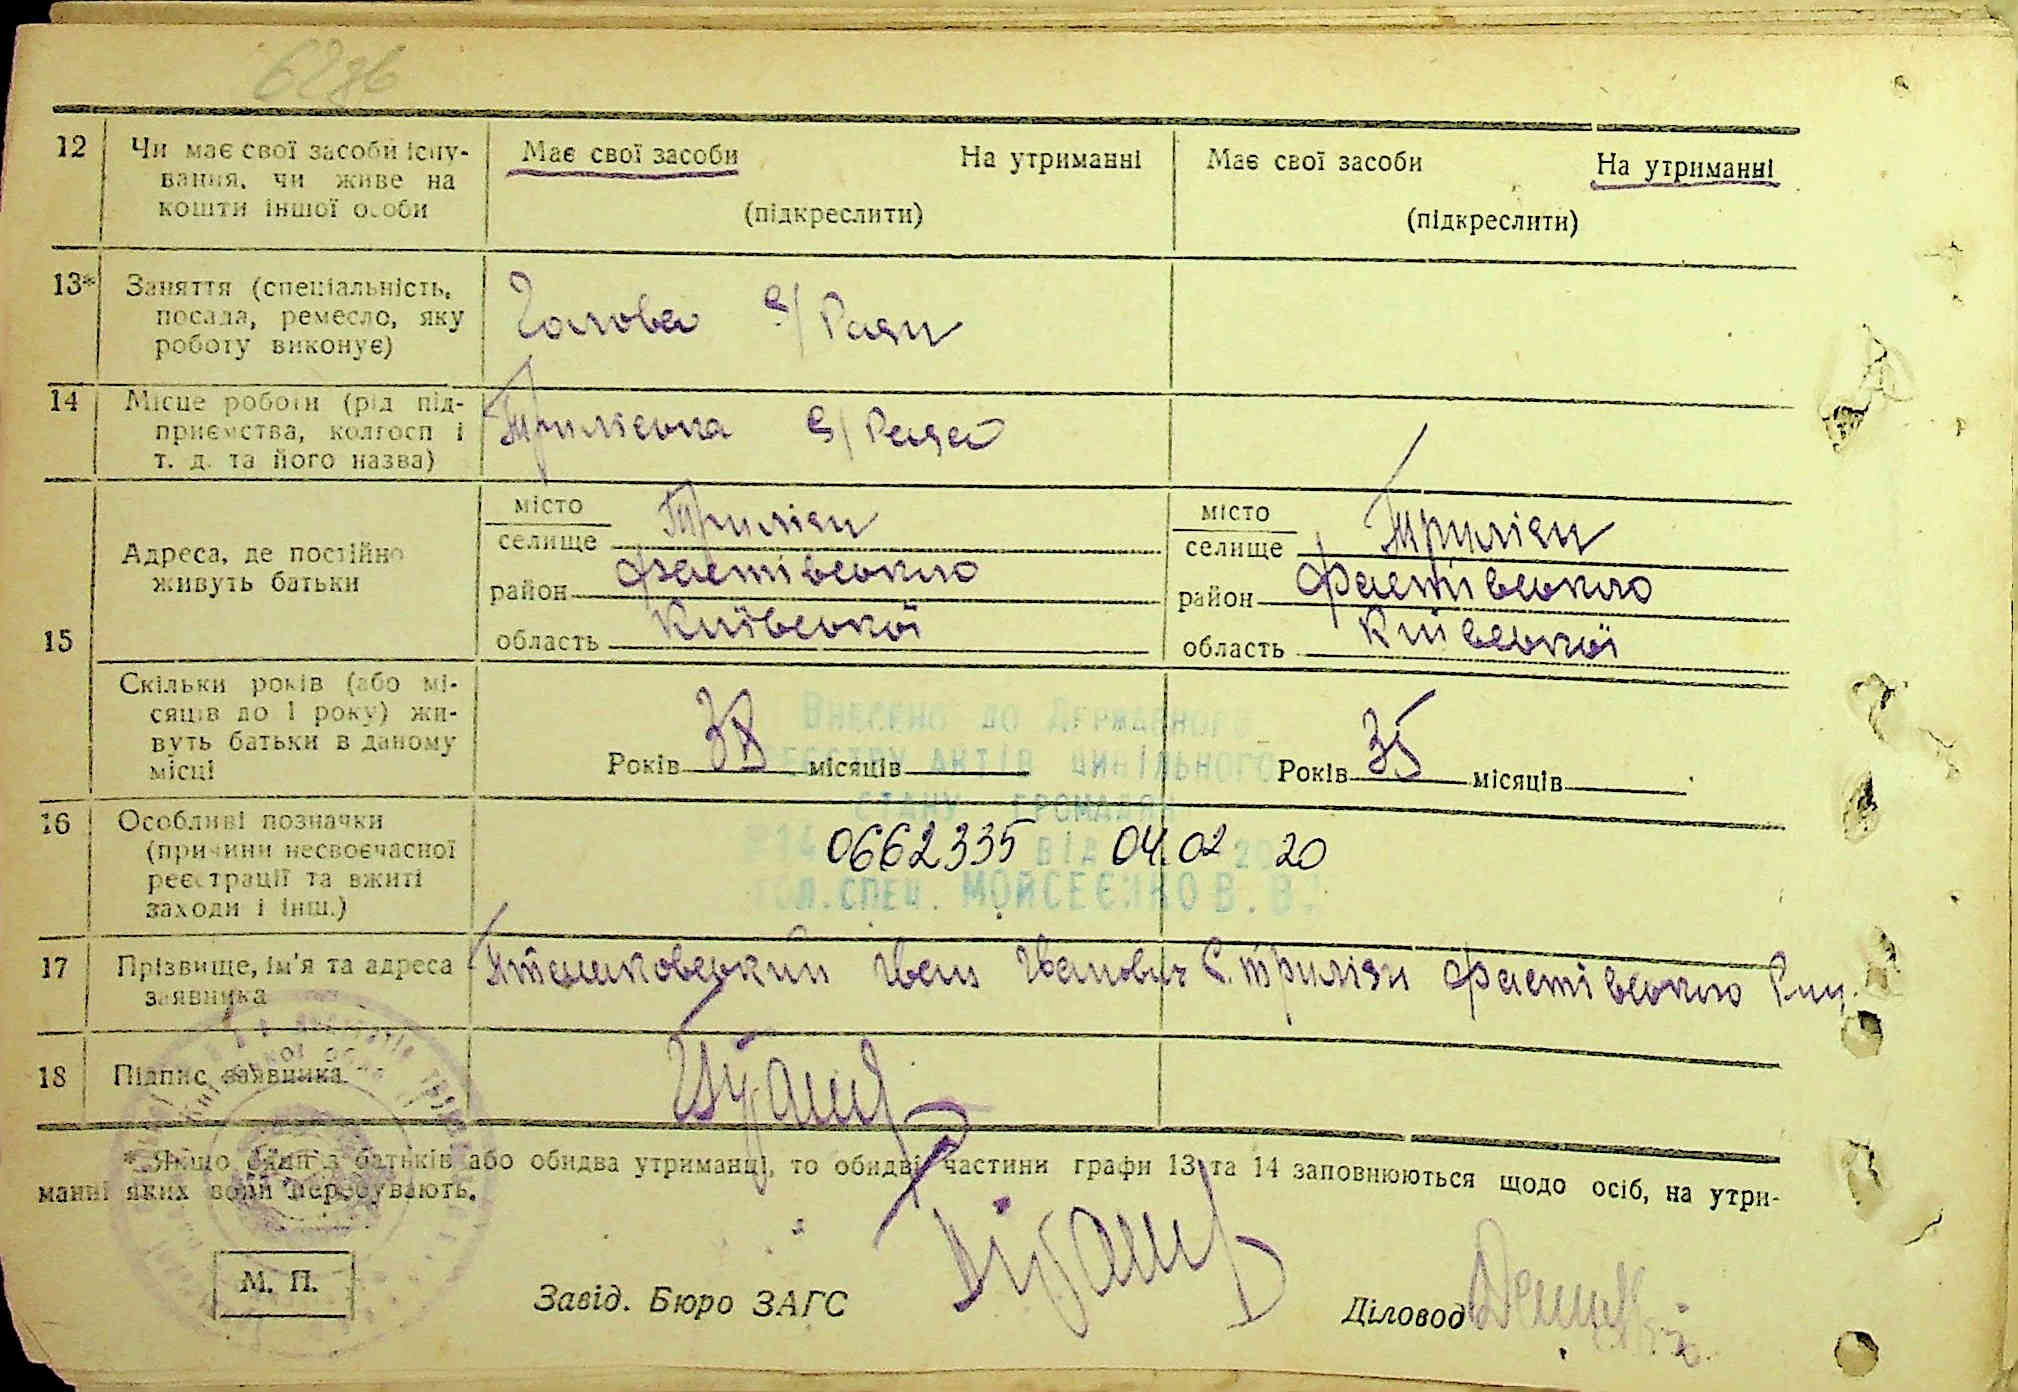 62зв
12 Чи має свої засоби існу-
вання, чи живе на
кошти іншої особи
Має свої засоби На утриманні
(підкреслити)
Має свої засоби На утриманні
(підкреслити)
13* Заняття (спеціальність,
посада, ремесло, яку
роботу виконує)
Голова с/Ради
14 Місце роботи (рід під-
приємства, колгосп і
т. д. та його назва)
Трилісська с/Рада
15 Адреса, де постійно
живуть батьки
місто
селище Триліси
район Фастівського
область Київської
місто
селище Триліси
район Фастівського
область Київської
Скільки років (або мі-
сяців до 1 року) жи-
вуть батьки в даному
місці
Років 38 місяців
Років 35 місяців
Внесено до Державного
реєстру актів цивільного
стану громадян
0662335 від 04.02 2020
гол.спец. Мойсеєнко В.В.
16 Особливі позначки
(причини несвоєчасної
реєстрації та вжиті
заходи і інш.)
17 Прізвище, ім'я та адреса
заявника
Іван Іванович с. Триліси Фастівського
18 Підпис заявника
* Якщо один з батьків або обидва утриманці, то обидві частини графи 13 та 14 заповнюються щодо осіб, на утри-
манні яких вони перебувають.
М. П.
Завід. Бюро ЗАГС
Діловод